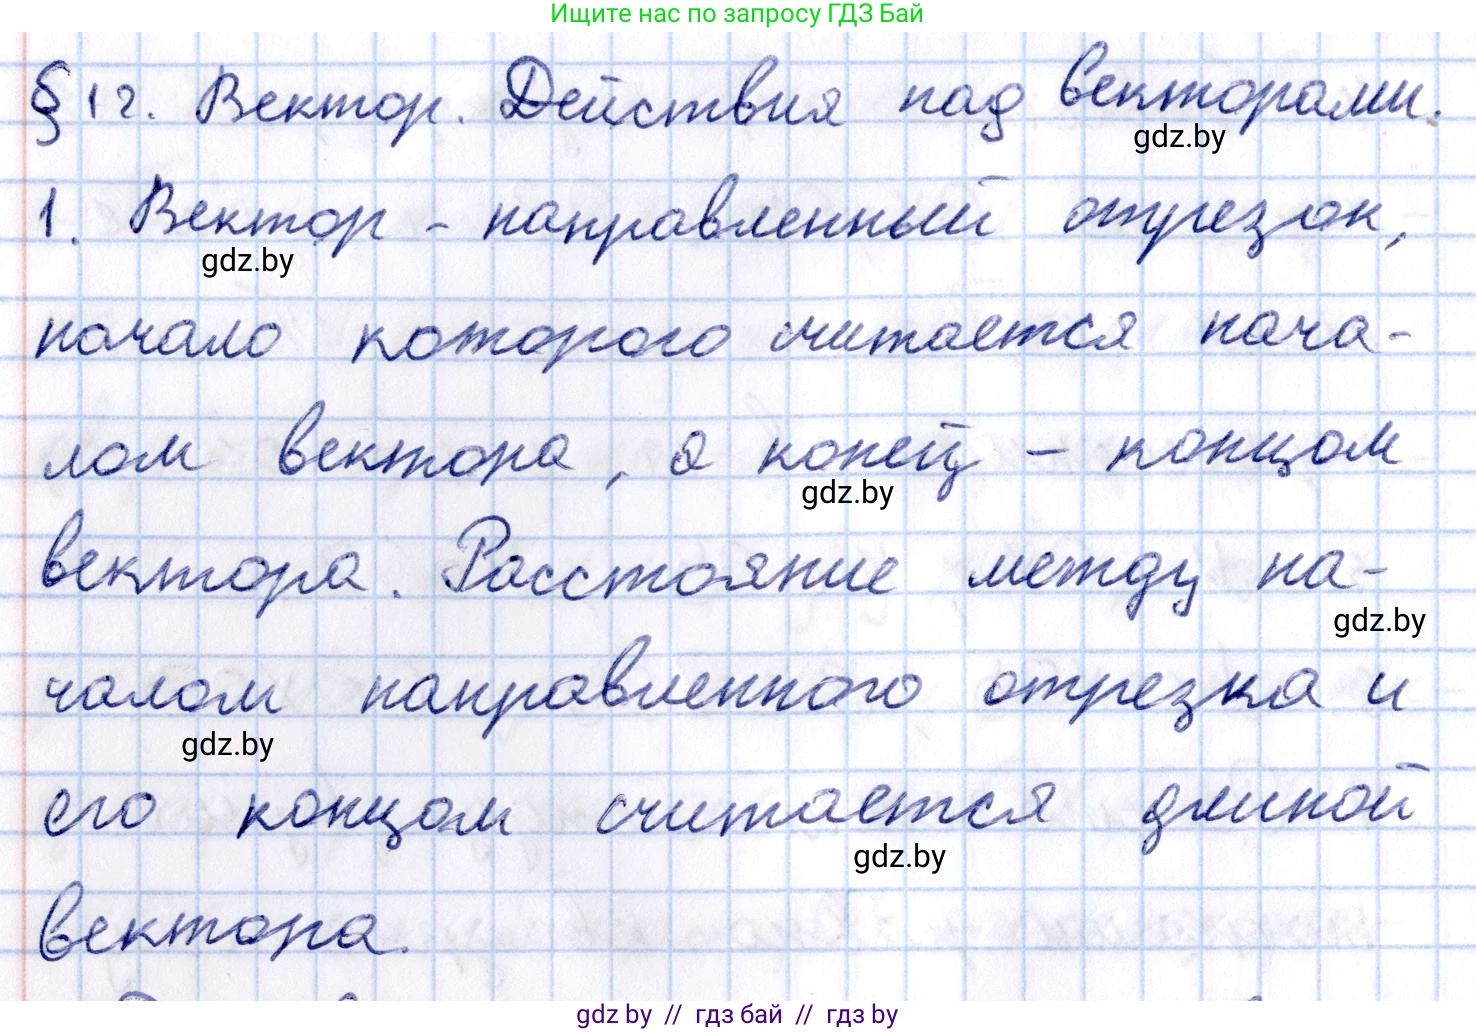 Ищите нас по запросу ГДЗ Бай
§ 12. Вектор. Действия над векторами.
gdz.by
1. Вектор - направленный отрезок,
gdz.by
начало которого считается нача-
лом вектора, а конец - концом
gdz.by
вектора. Расстояние между на-
gdz.by
чалом направленного отрезка и
gdz.by
его концом считается длиной
gdz.by
вектора.
gdz by // гдз бай // гдз by